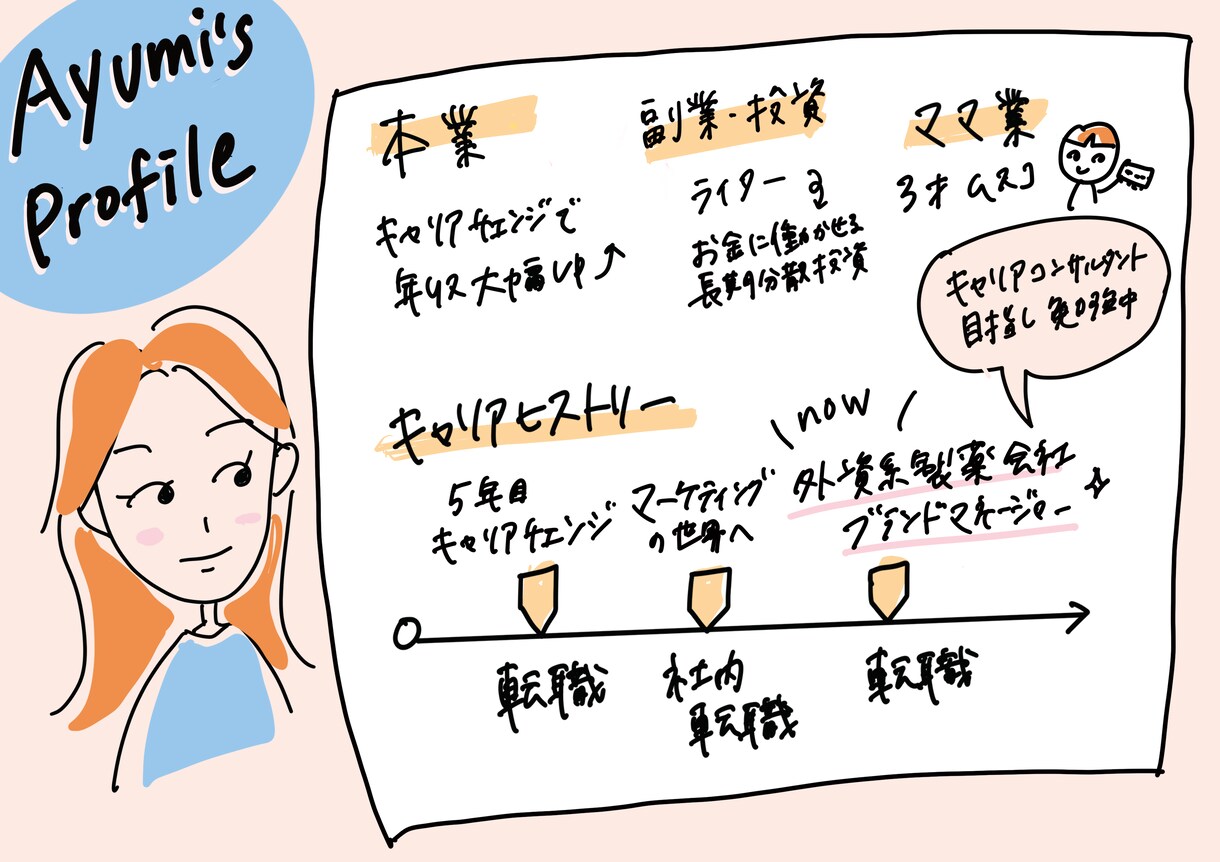 Ayumi's
Profile
本業
キャリアチェンジで
年収大幅up↗
副業・投資
ライター
お金に働かせる
長期分散投資
ママ業
3才ムスコ
キャリアコンサルタント
目指し勉強中
キャリアヒストリー
5年目
キャリアチェンジ
マーケティング
の世界へ
now
外資系製薬会社
ブランドマネージャー
転職
社内
転職
転職